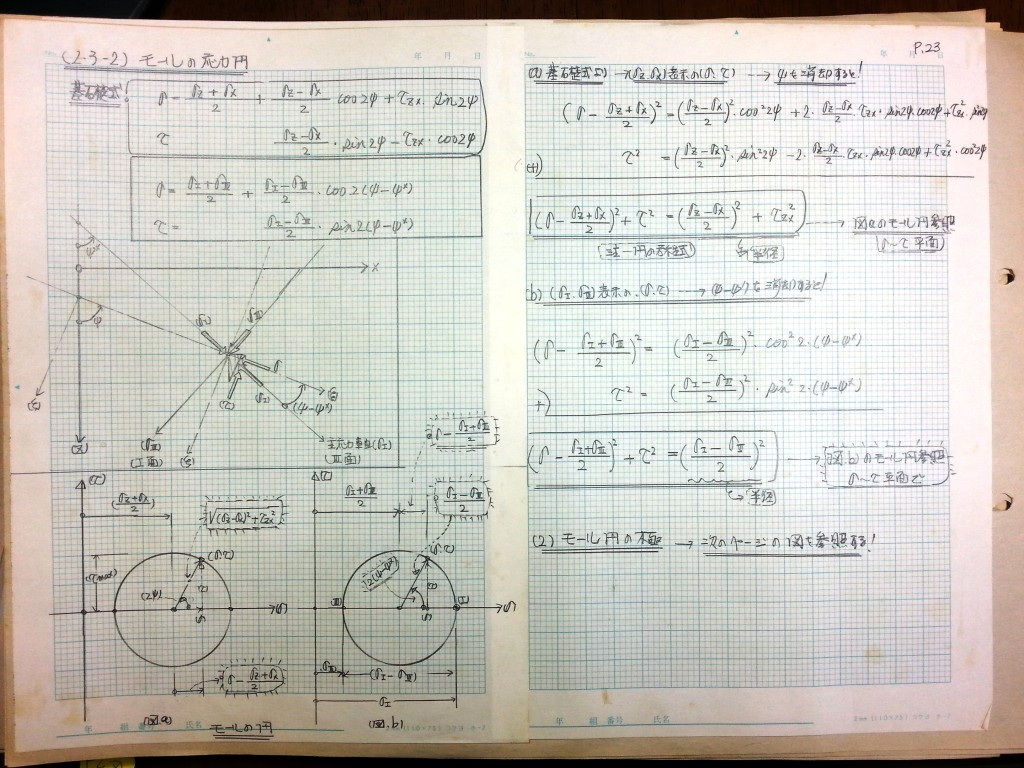 (2-3-2) モールの応力円
年 月 日
基礎式
σ = (σz + σx)/2 + (σz - σx)/2 cos2ψ + τzx · sin2ψ
τ (σz - σx)/2 · sin2ψ - τzx · cos2ψ
σ = (σⅠ + σⅢ)/2 + (σⅠ - σⅢ)/2 · cos2(ψ-ψ*)
τ = (σⅠ - σⅢ)/2 · sin2(ψ-ψ*)
ψ*
X
ψ
(σⅠ)
(σⅢ)
σ
(τ)
(σⅠ)
(ψ-ψ*)
(ξ)
(Z)
(σⅢ)
(Ⅰ面)
(ξ)
主応力軸(σⅠ)
(Ⅲ面)
σ - (σⅠ+σⅢ)/2
(τ)
(σz+σx)/2
√(σz-σx)²+τzx²
(σ.τ)
(τmax)
(2ψ)
τ
σ
(σ)
σ - (σz+σx)/2
(図.a)
(τ)
(σⅠ+σⅢ)/2
(σⅠ-σⅢ)/2
(σ.τ)
2(ψ-ψ*)
τ
(Ⅲ)
σ
(Ⅰ)
(σ)
σⅢ
(σⅠ-σⅢ)
σⅠ
(図.b)
モールの円
年 組 番号 氏名
P.23
年 月 日
(a) 基礎式の →(σz.σx)表示の(σ.τ) → ψを消却すると!
(σ - (σz+σx)/2)² = ((σz-σx)/2)² · cos²2ψ + 2 · (σz-σx)/2 · τzx · sin2ψ · cos2ψ + τzx² · sin²2ψ
(+) τ² = ((σz-σx)/2)² · sin²2ψ - 2 · (σz-σx)/2 · τzx · sin2ψ cos2ψ + τzx² · cos²2ψ
(σ - (σz+σx)/2)² + τ² = ((σz-σx)/2)² + τzx² → 図aのモール円参照
半径
σ~τ平面
(b) (σⅠ.σⅢ)表示の.(σ.τ) → (ψ-ψ*)を消却すると!
(σ - (σⅠ+σⅢ)/2)² = ((σⅠ-σⅢ)/2)² · cos²2·(ψ-ψ*)
+) τ² = ((σⅠ-σⅢ)/2)² · sin²2·(ψ-ψ*)
(σ - (σⅠ+σⅢ)/2)² + τ² = ((σⅠ-σⅢ)/2)² → 図.bのモール円参照
σ~τ平面で
半径
(2) モール円の極 → 次のページの図を参照する!
年 組 番号 氏名